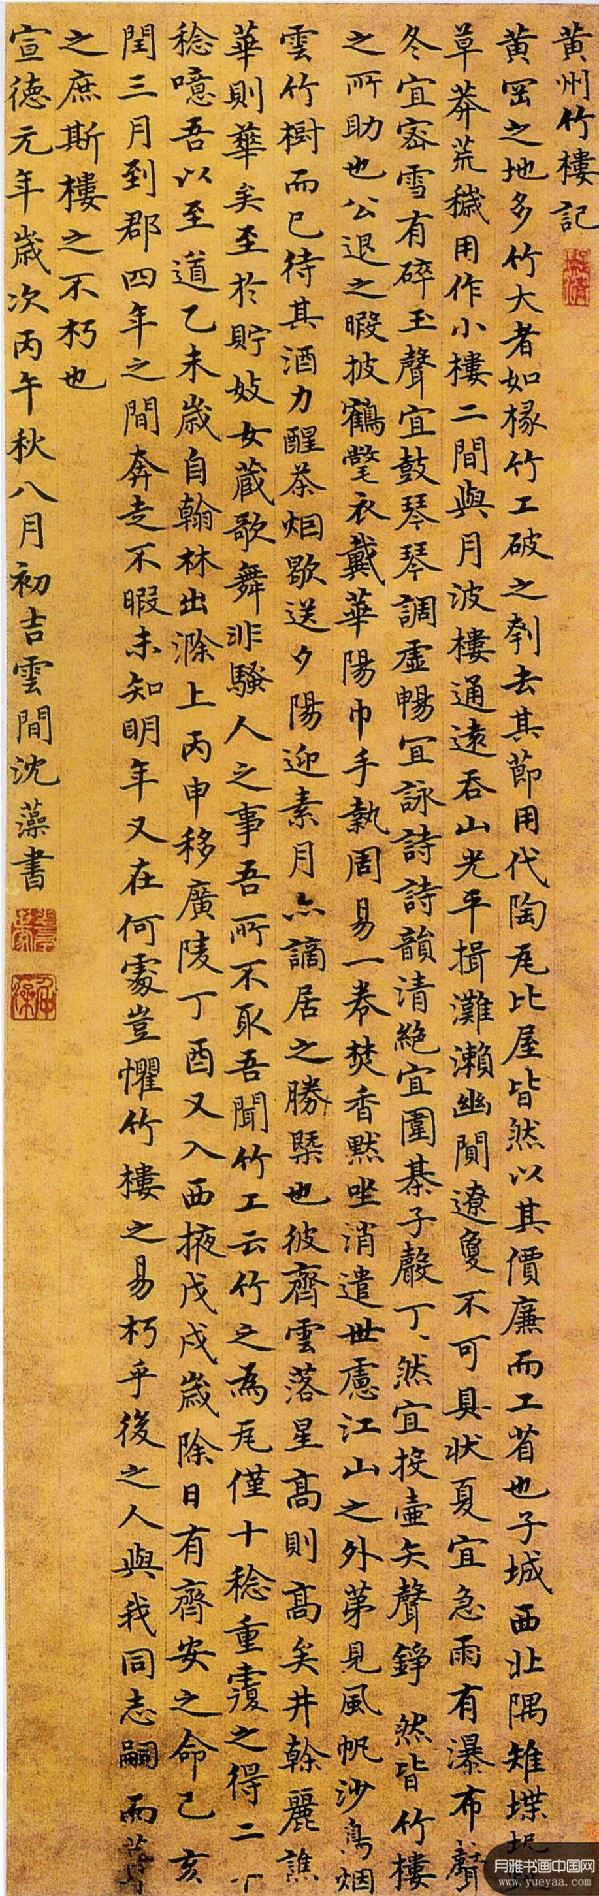 黃州竹樓記
黃岡之地多竹大者如椽竹工破之刳去其節用代陶瓦比屋皆然以其價廉而工省也子城西北隅雉堞圮
草莽荒穢用作小樓二間與月波樓通遠吞山光平挹灘瀨幽闃遼夐不可具狀夏宜急雨有瀑布聲
冬宜密雪有碎玉聲宜鼓琴琴調虛暢宜詠詩詩韻清絕宜圍棊子聲丁丶然宜投壺矢聲錚然皆竹樓
之所助也公退之暇披鶴氅衣戴華陽巾手執周易一卷焚香默坐消遣世慮江山之外第見風帆沙鳥烟
雲竹樹而已待其酒力醒茶烟歇送夕陽迎素月亦謫居之勝槩也彼齊雲落星高則高矣井榦麗譙
華則華矣至於貯妓女藏歌舞非騷人之事吾所不取吾聞竹工云竹之為瓦僅十稔重覆之得二十
稔噫吾以至道乙未歲自翰林出滁上丙申移廣陵丁酉又入西掖戊戌歲除日有齊安之命己亥
閏三月到郡四年之間奔走不暇未知明年又在何處豈懼竹樓之易朽乎後之人與我同志嗣而葺
之庶斯樓之不朽也
宣德元年歲次丙午秋八月初吉雲間沈藻書
月雅书画中国网
www.yueyaa.com